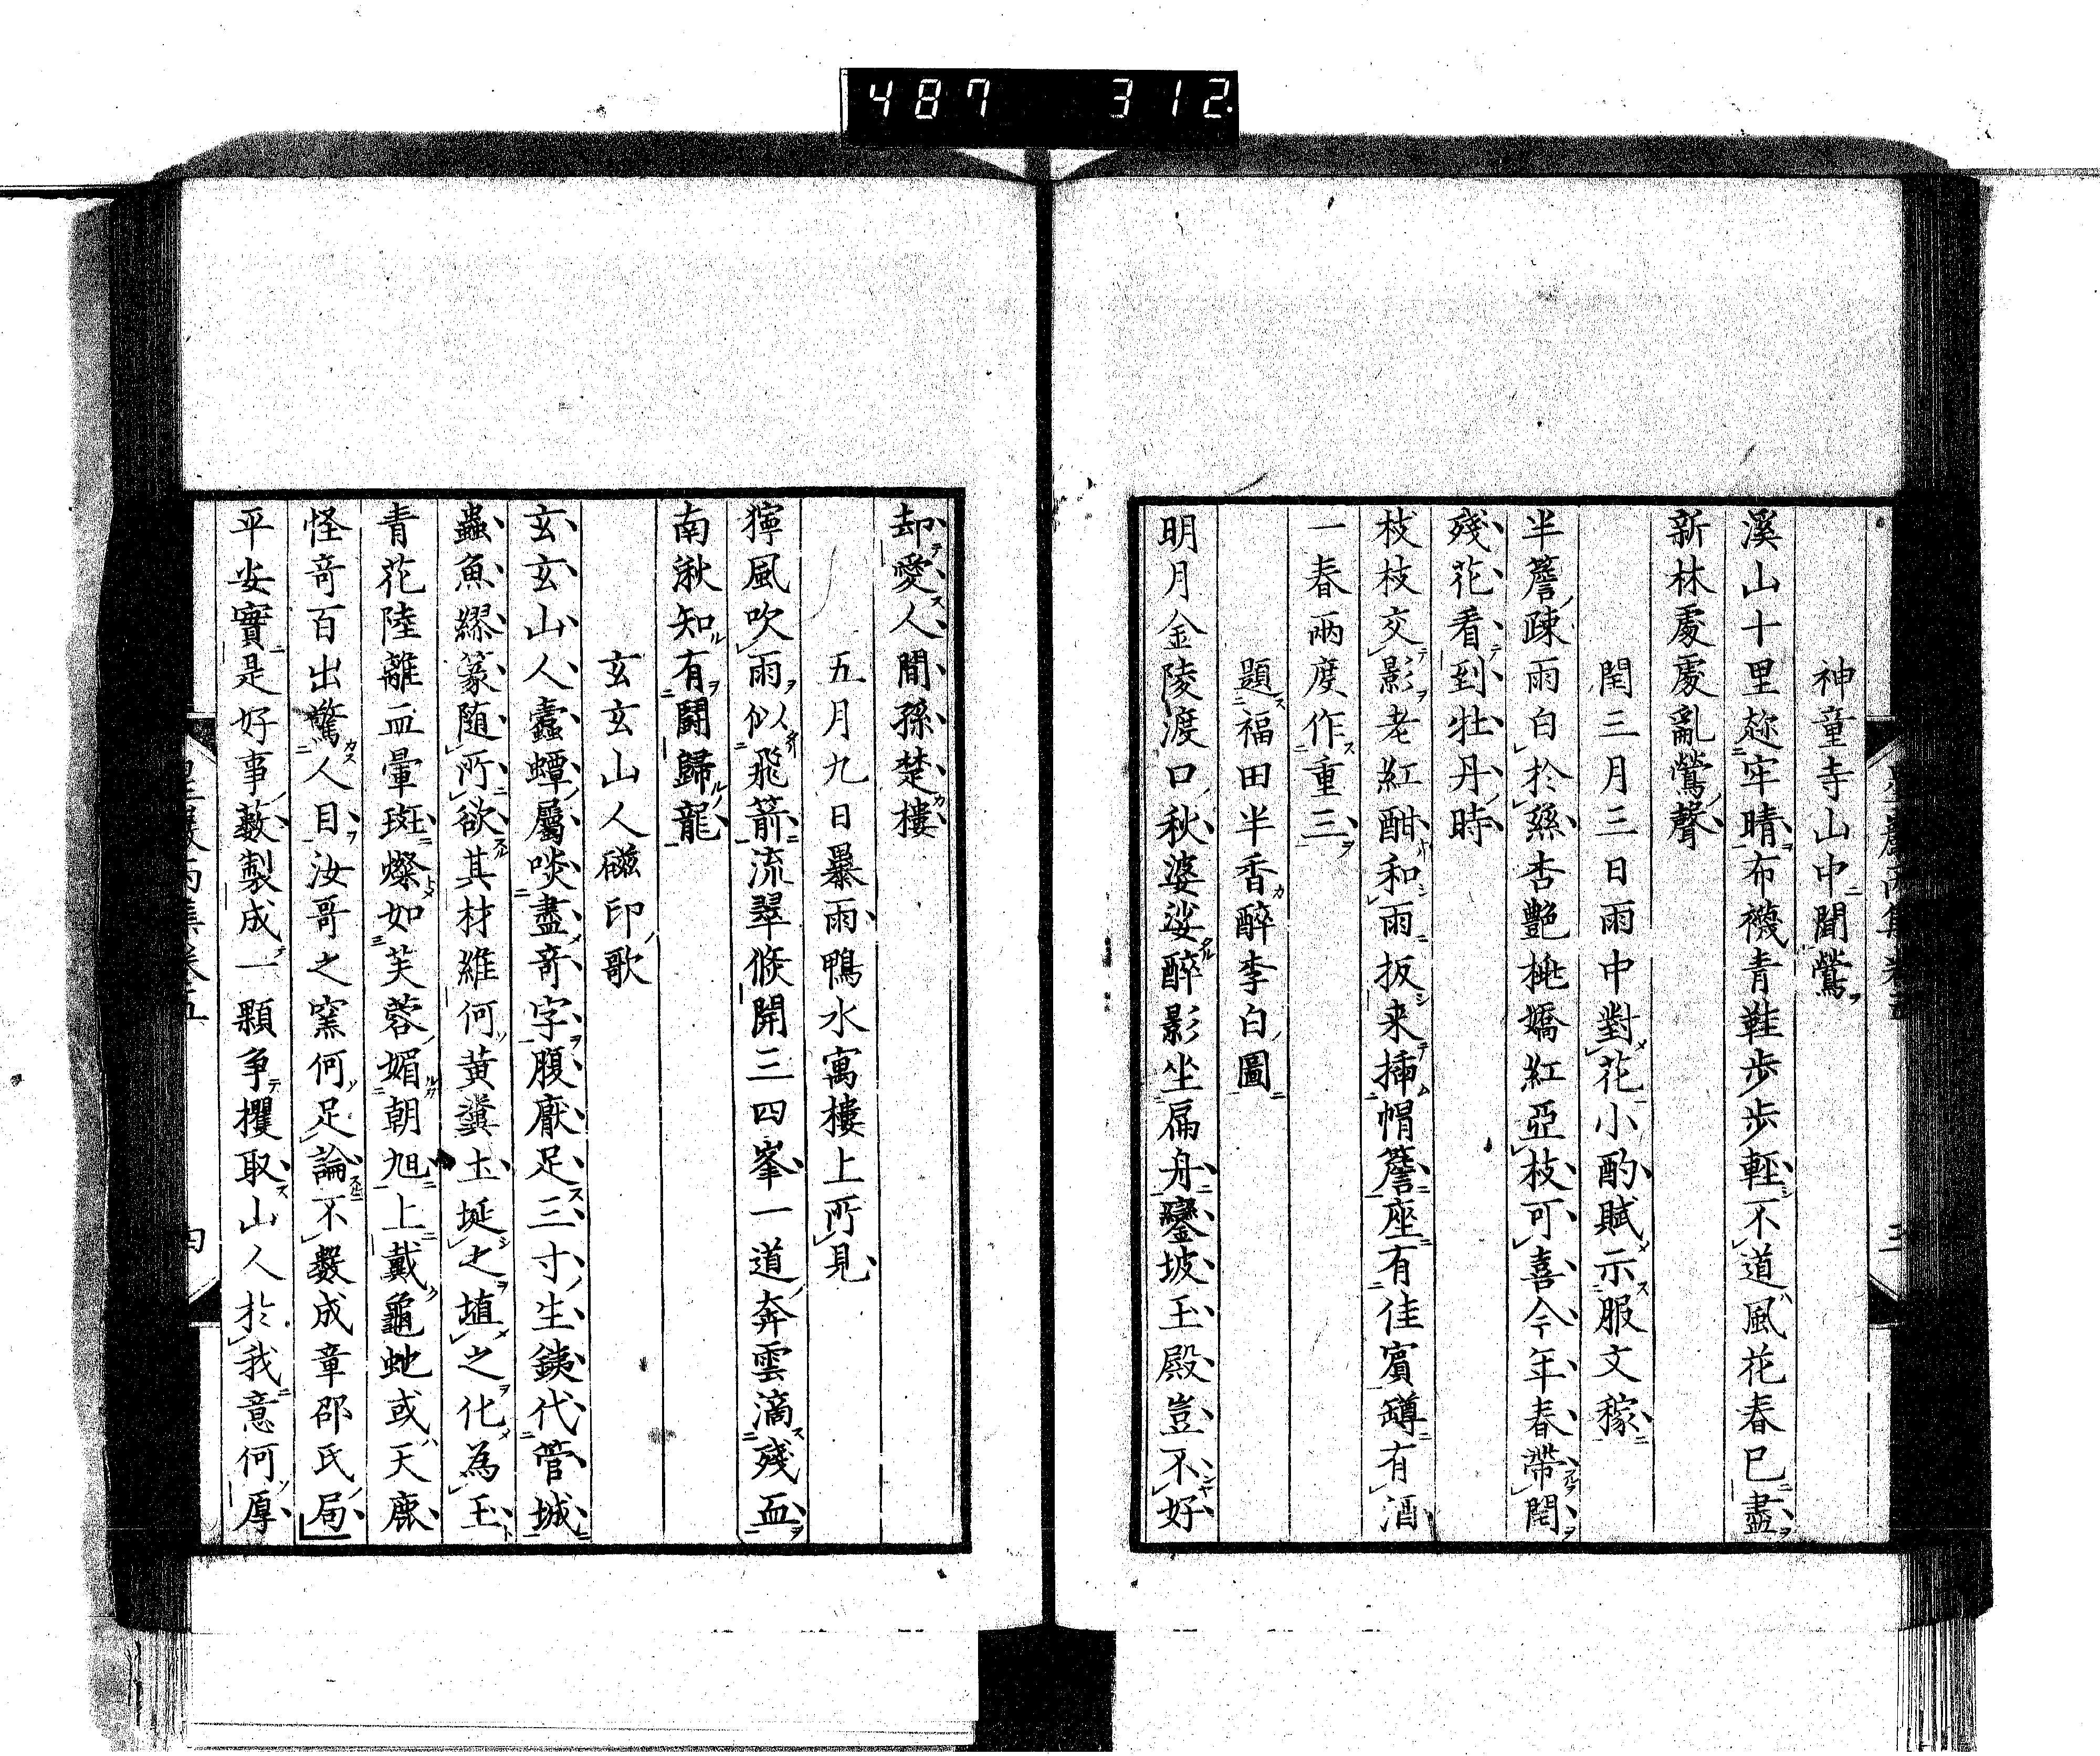 487 312
神童寺山中聞鶯
溪山十里趂牢晴布襪青鞋歩歩輕不道風花春已盡
新林處處亂鶯聲
閏三月三日雨中對花小酌賦示服文稼
半簷疎雨白於絲杏艶桃嬌紅亞枝可喜今年春帶閏
殘花看到牡丹時
枝枝交影老紅酣和雨扳来揷帽簷座有佳賓罇有酒
一春兩度作重三
題福田半香醉李白圖
明月金陵渡口秋婆娑醉影坐扁舟鑾坡玉殿豈不好
却愛人間孫楚樓
五月九日暴雨鴨水寓樓上所見
獰風吹雨似飛箭流翠倐開三四峯一道奔雲滴殘血
南湫知有鬪歸龍
玄玄山人磁印歌
玄玄山人蠹蟫屬啖盡竒字腹厭足三寸生銕代菅城
蟲魚繆篆随所欲其材維何黃糞土埏之埴之化為玉
青花陸離血暈斑燦如芙蓉媚朝旭上戴龜虵或天鹿
怪竒百出驚人目汝哥之窯何足論不數成章邵氏局
平安實是好事藪製成一顆争攫取山人於我意何厚